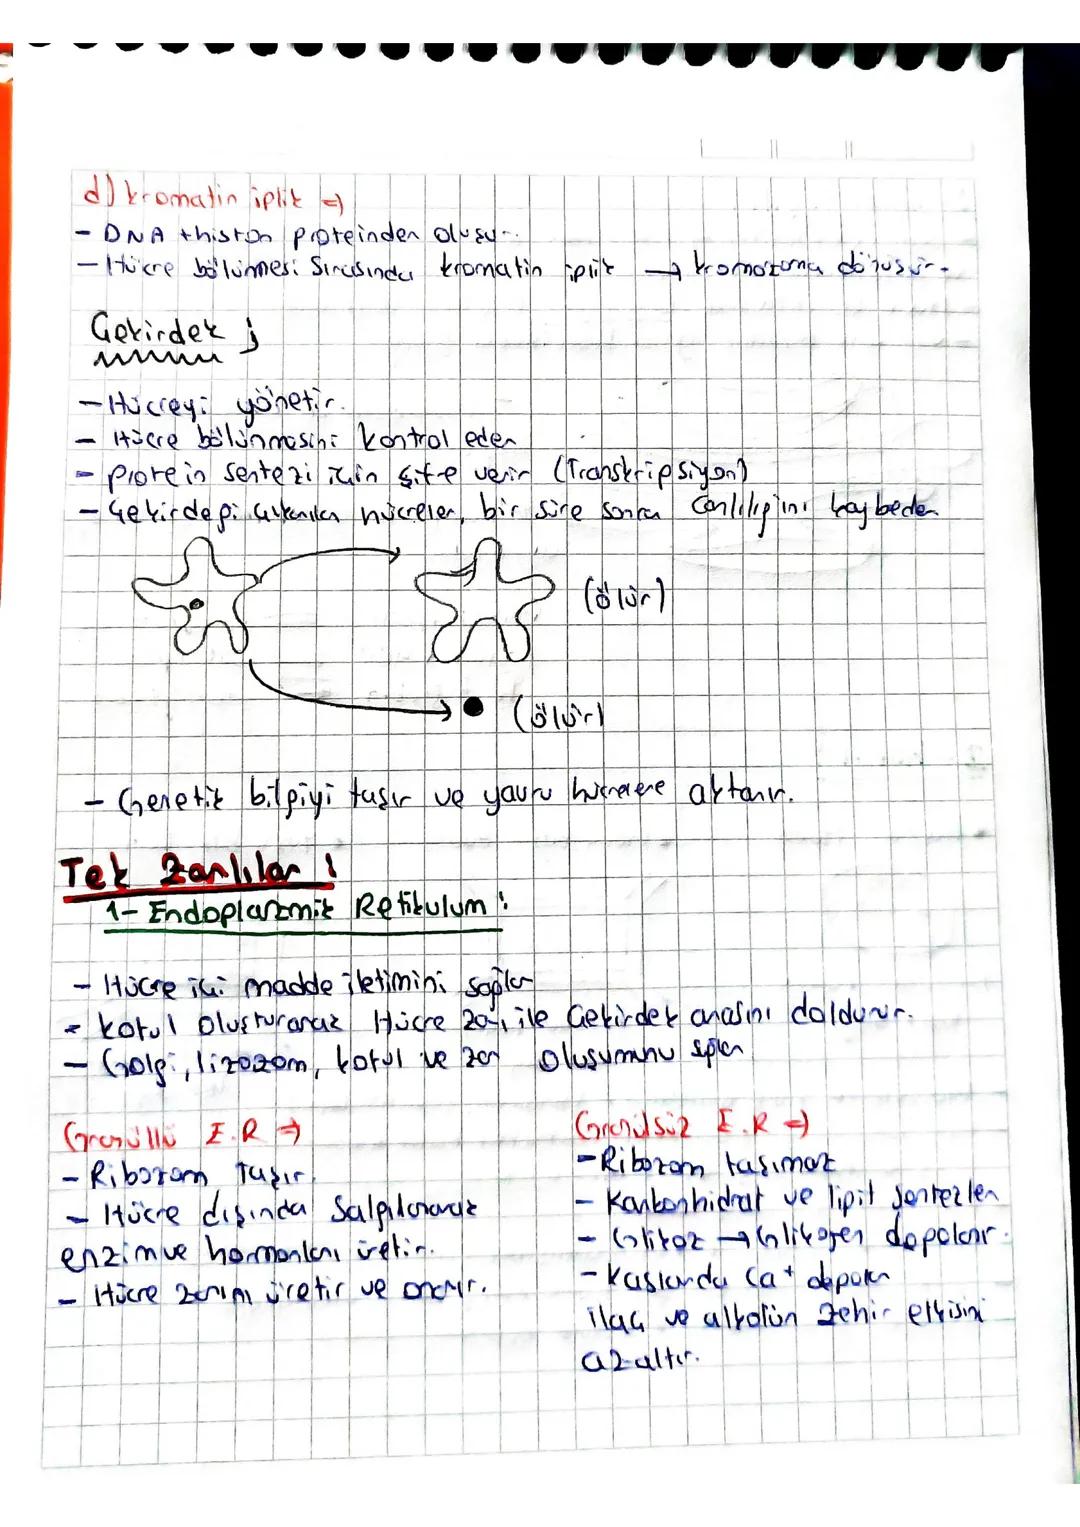 d) kromatin iplik ⇒
- DNA + histon proteinden oluşur.
- Hücre bölünmesi sırasında kromatin iplik → kromozoma dönüşür.
Çekirdek ;
- Hücreyi yönetir.
- Hücre bölünmesini kontrol eder
- protein sentezi için şifre verir (Transkripsiyon)
- Çekirdeği çıkarılan hücreler, bir süre sonra canlılığını kaybeder
(ölür)
(ölür)
- Genetik bilgiyi taşır ve yavru hücrelere aktarır.
Tek Zarlılar :
1- Endoplazmik Retikulum :
- Hücre içi madde iletimini sağlar
- koful oluşturarak Hücre zarı ile Çekirdek arasını doldurur.
- Golgi, lizozom, koful ve zar oluşumunu sağlar
Granüllü E.R ⇒
- Ribozom taşır.
- Hücre dışında salgılanarak
enzim ve hormonları üretir.
- Hücre zarını üretir ve onarır.
Granülsüz E.R ⇒
- Ribozom taşımaz
- Karbonhidrat ve lipit sentezler
- Glikoz → Glikojen depolanır.
- Kaslarda Ca+ depolar
ilaç ve alkolün zehir etkisini
azaltır.